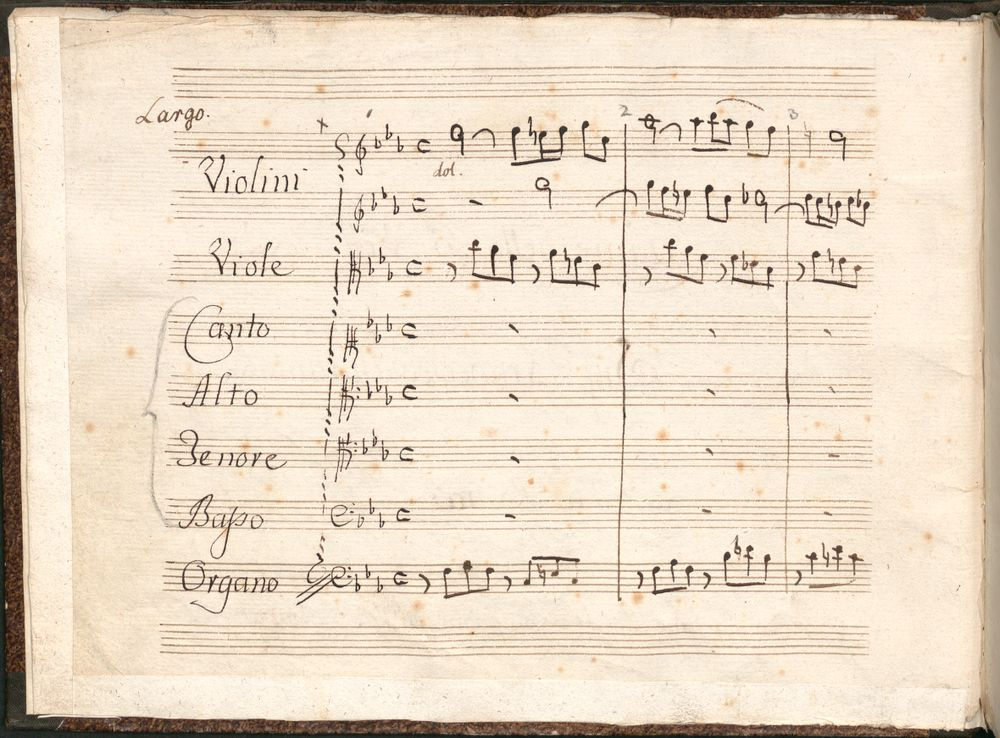 Largo.
2
3
Violini
dol.
Viole
Canto
Alto
Tenore
Basso
Organo